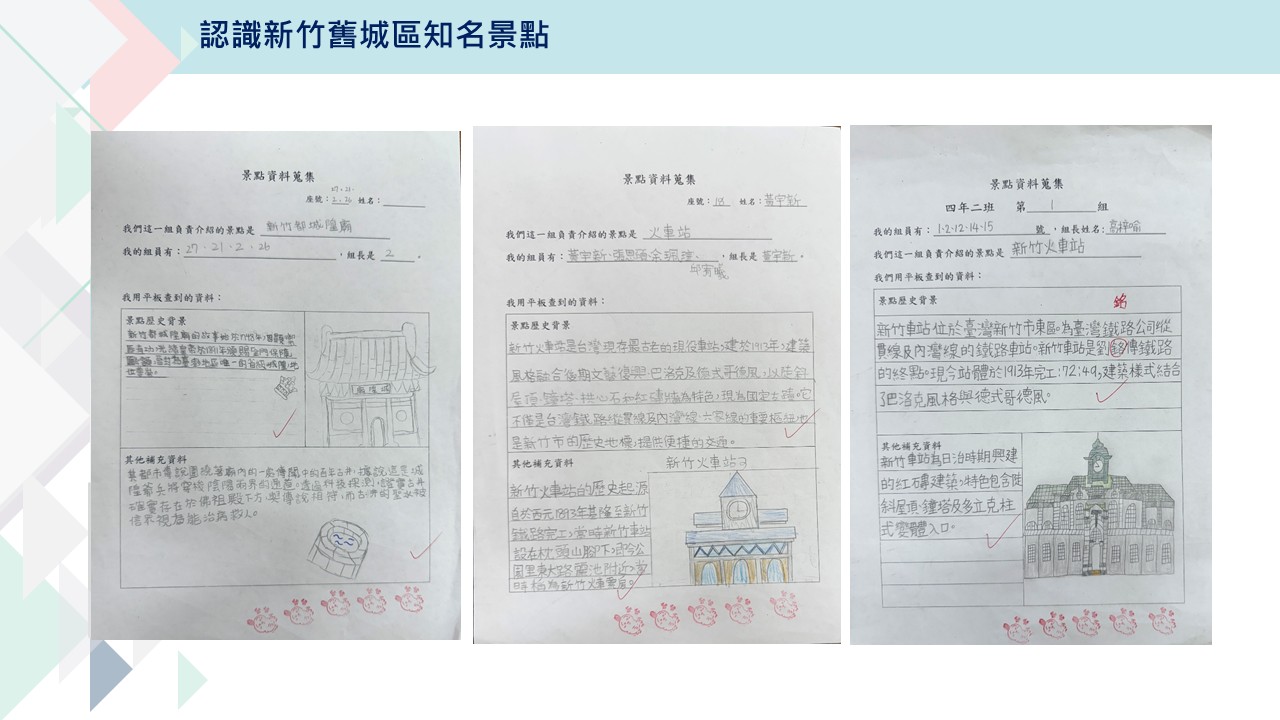 認識新竹舊城區知名景點
景點資料蒐集
27、21、
座號：2、26 姓名：
我們這一組負責介紹的景點是 新竹都城隍廟
我的組員有：27、21、2、26，組長是 2 。
我用平板查到的資料：
景點歷史背景
其他補充資料
其都市傳說圍繞著廟內的一島傳聞中的百年古井，據說這是城
隍爺兵將穿梭陰陽兩界的通道。透過科技探測，證實古井
確實存在於佛祖殿下方，與傳說相符，而古井的聖水被
信眾視為能治病救人。
景點資料蒐集
座號：18 姓名：黃宇新
我們這一組負責介紹的景點是 火車站
我的組員有：黃宇新、張恩碩、余珮瑋、，組長是 黃宇新 。
我用平板查到的資料：
景點歷史背景
新竹火車站是台灣現存最古老的現役車站，建於1913年，建築
風格融合後期文藝復興、巴洛克及德式哥德風，以陡斜
屋頂、鐘塔、拱心石和紅磚牆為特色，現為國定古蹟。它
不僅是台灣鐵路縱貫線及內灣線、六家線的重要樞紐，也
是新竹市的歷史地標，提供便捷的交通。
其他補充資料
新竹火車站的歷史起源
自於西元1893年基隆至新竹
鐵路完工，當時新竹車站
設在枕頭山腳下，即今公
園里東大路靈池附近，當
時稱為新竹火車票房。
新竹火車站
景點資料蒐集
四年二班 第 1 組
我的組員有：1、2、12、14、15 號，組長姓名：高梓喻
我們這一組負責介紹的景點是 新竹火車站
我們用平板查到的資料：
景點歷史背景
銘
新竹車站位於臺灣新竹市東區。為臺灣鐵路公司縱
貫線及內灣線的鐵路車站。新竹車站是劉銘傳鐵路
的終點。現今站體於1913年完工：72:49，建築樣式結合
了巴洛克風格與德式哥德風。
其他補充資料
新竹車站為日治時期興建
的紅磚建築，特色包含陡
斜屋頂、鐘塔及多立克柱
式變體入口。